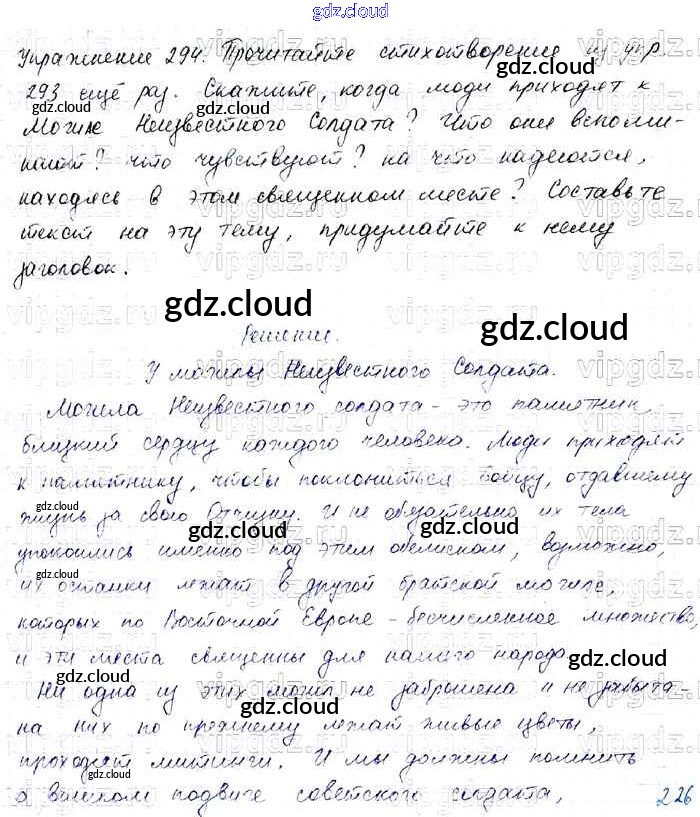 gdz.cloud
Упражнение 294. Прочитайте стихотворение из упр.
293 ещё раз. Скажите, когда люди приходят к
Могиле Неизвестного Солдата? Что они вспоми-
нают? что чувствуют? на что надеются,
находясь в этом священном месте? Составьте
текст на эту тему, придумайте к нему
заголовок.
gdz.cloud
gdz.cloud
Решение.
У могилы Неизвестного Солдата.
Могила Неизвестного солдата - это памятник,
близкий сердцу каждого человека. Люди приходят
к памятнику, чтобы поклониться бойцу, отдавшему
жизнь за свою Отчизну. И не обязательно их тела
упокоились именно под этим обелиском, возможно,
их останки лежат в другой братской могиле,
которых по Восточной Европе - бесчисленное множество,
и эти места священны для нашего народа
Ни одна из этих могил не заброшена и не забыта-
на них по прежнему лежат живые цветы,
проходят митинги. И мы должны помнить
о великом подвиге советского солдата,
226